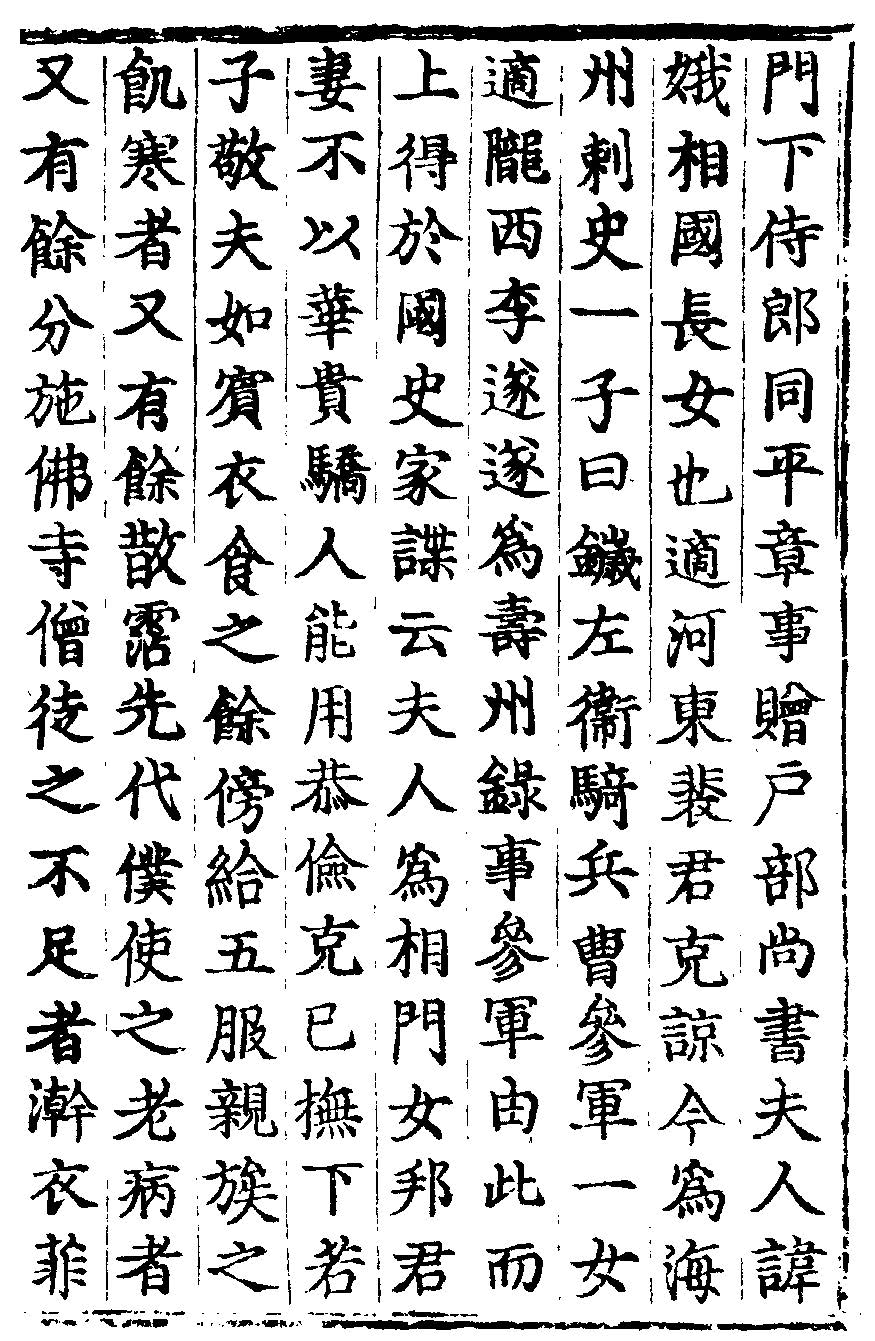 門下侍郎同平章事贈戶部尚書夫人諱
娥相國長女也適河東裴君克諒今爲海
州刺史一子曰鐬左衞騎兵曹參軍一女
適隴西李遂遂爲壽州錄事參軍由此而
上得於國史家諜云夫人爲相門女邦君
妻不以華貴驕人能用恭儉克已撫下若
子敬夫如賓衣食之餘傍給五服親族之
飢寒者又有餘散霑先代僕使之老病者
又有餘分施佛寺僧徒之不足者澣衣菲